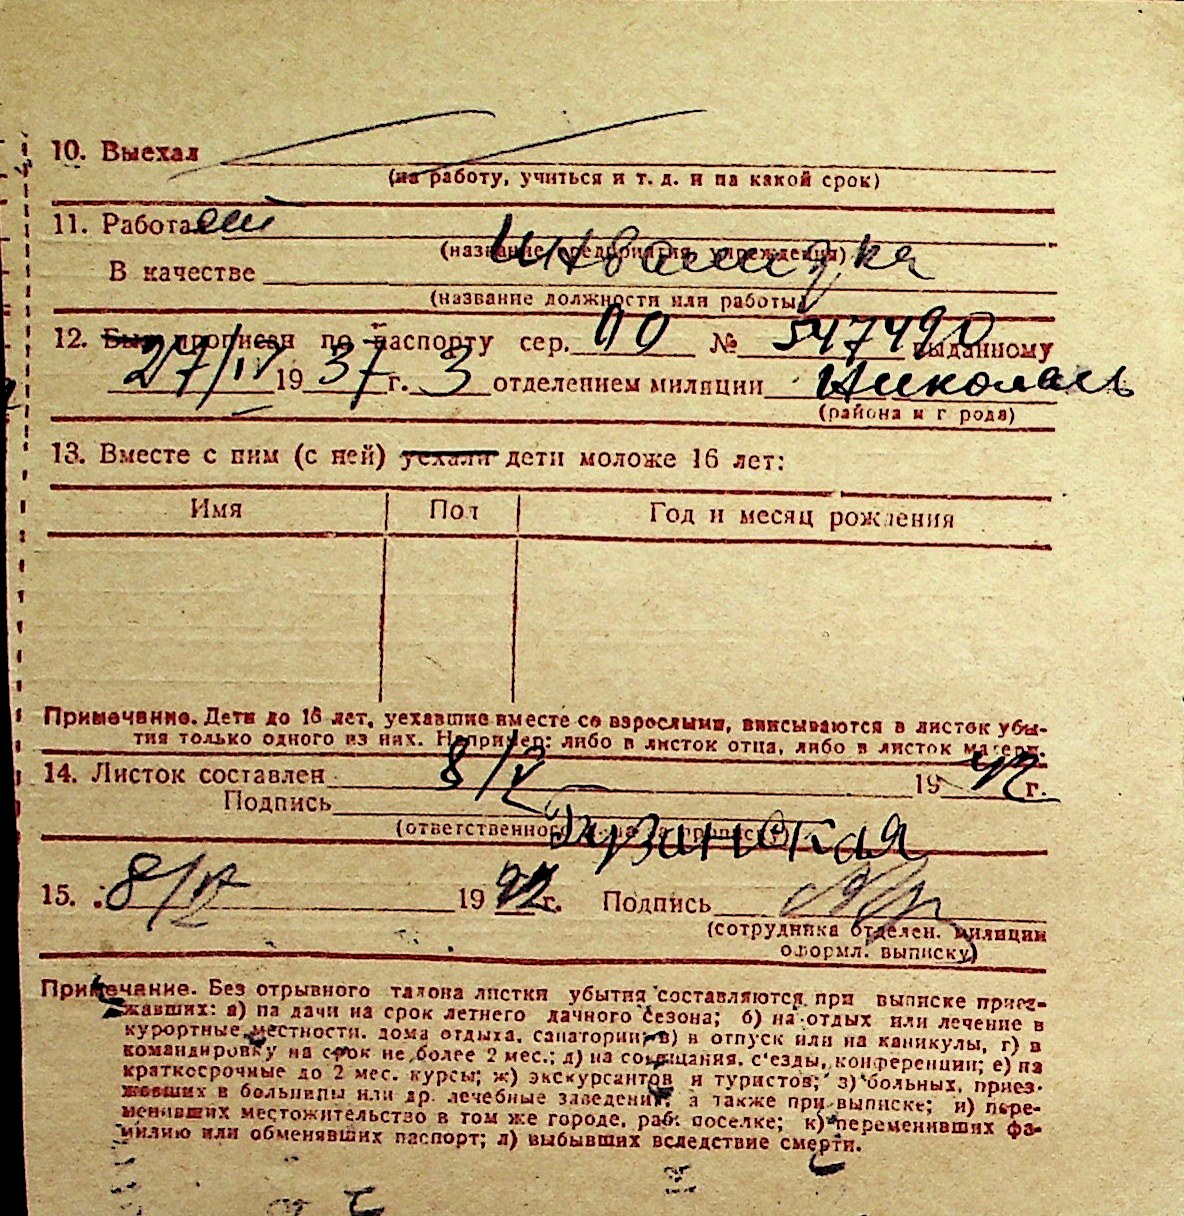 10. Выехал
(на работу, учиться и т. д. и на какой срок)
11. Работает
(название предприятия, учреждения)
В качестве
(название должности или работы)
12. Был прописан по паспорту сер. № 547490 выданному
27/IV 1937 г. 3 отделением милиции Николаевь
(района и города)
13. Вместе с ним (с ней) уехали дети моложе 16 лет:
Имя Пол Год и месяц рождения
Примечание. Дети до 16 лет, уехавшие вместе со взрослыми, вписываются в листок убы-
тия только одного из них. Например: либо в листок отца, либо в листок матери.
14. Листок составлен 8/V 1942 г.
Подпись
(ответственного за прописку)
15. 8/V 1942 г. Подпись
(сотрудника отделен. милиции
оформл. выписку)
Примечание. Без отрывного талона листки убытия составляются при выписке приез-
жавших: а) на дачи на срок летнего дачного сезона; б) на отдых или лечение в
курортные местности, дома отдыха, санатории; в) в отпуск или на каникулы, г) в
командировку на срок не более 2 мес.; д) на совещания, с'езды, конференции; е) на
краткосрочные до 2 мес. курсы; ж) экскурсантов и туристов; з) больных, приез-
жавших в больницы или др. лечебные заведения, а также при выписке; и) пере-
менивших местожительство в том же городе, раб. поселке; к) переменивших фа-
милию или обменявших паспорт; л) выбывших вследствие смерти.